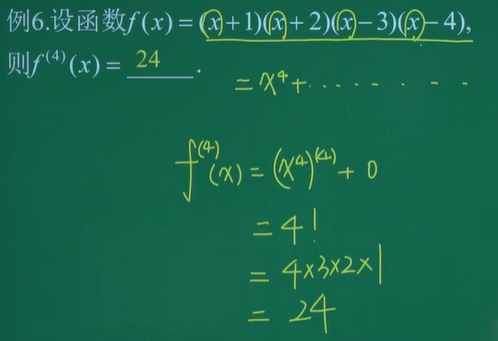 例6.设函数f(x)=(x+1)(x+2)(x-3)(x-4),
则f⁽⁴⁾(x)= 24 .
=x⁴+.........
f⁽⁴⁾(x)=(x⁴)⁽⁴⁾+0
=4!
=4×3×2×1
=24